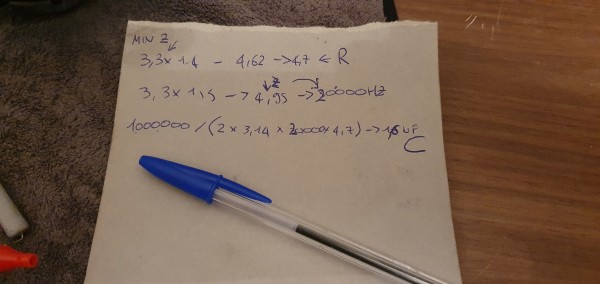 MIN Z
3,3x 1.4 - 4,62 ->4,7 <- R
Z
3,3x 1,5 -> 4,95 -> 20000HZ
1000000/(2 x 3,14 x 20000x4,7) -> UF
C